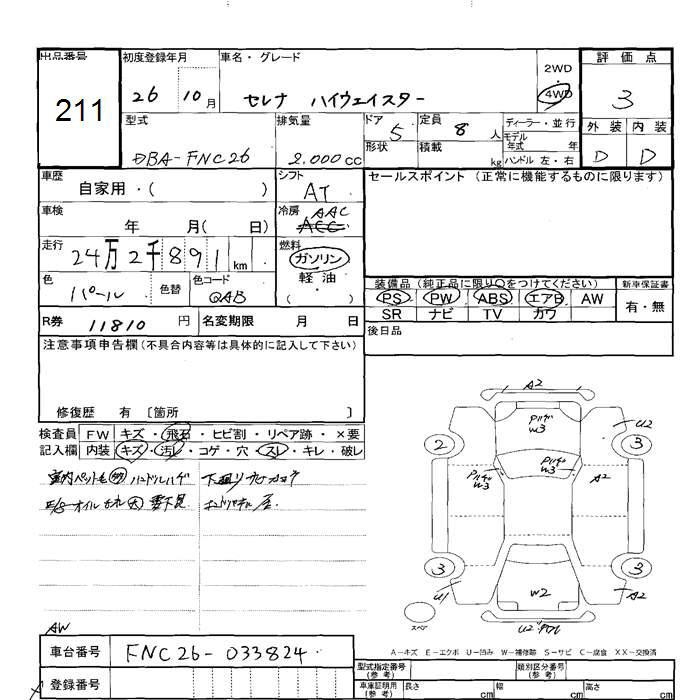 出品番号 初度登録年月 車名・グレード 評価点
211 26 10月 セレナ ハイウェイスター 2WD 4WD 3
型式 排気量 ドア 定員 ディーラー・並行 外装 内装
DBA-FNC26 2.000cc 5 8人 モデル年式 年 D D
形状 積載 kg ハンドル 左・右
車歴 自家用・( ) シフト AT セールスポイント (正常に機能するものに限ります)
車検 年 月( 日) 冷房 AAC ACC
走行 24万2千891km 燃料 ガソリン
軽油
( ・ )
色 パール 色替 色コード QAB
装備品 (純正品に限り○をつけてください) 新車保証書
PS PW ABS エアB AW 有・無
SR ナビ TV カワ
R券 11810円 名変期限 月 日 後日品
注意事項申告欄(不具合内容等は具体的に記入して下さい)
修復歴 有 〔箇所 〕
検査員 FW キズ・飛石・ヒビ割・リペア跡・×要
記入欄 内装 キズ・汚レ・コゲ・穴・スレ・キレ・破レ
ハンドルハゲ
オイル
A2
U2
W3
2 3
W3 W3 A2
3 3
U1 W2 A2
スペア U2
A-キズ E-エクボ U-凹み W-補修跡 S-サビ C-腐食 XX-交換済
AW
車台番号 FNC26-033824
登録番号
型式指定番号 (参考) 類別区分番号 (参考)
車庫証明用 (参考) 長さ cm 幅 cm 高さ cm